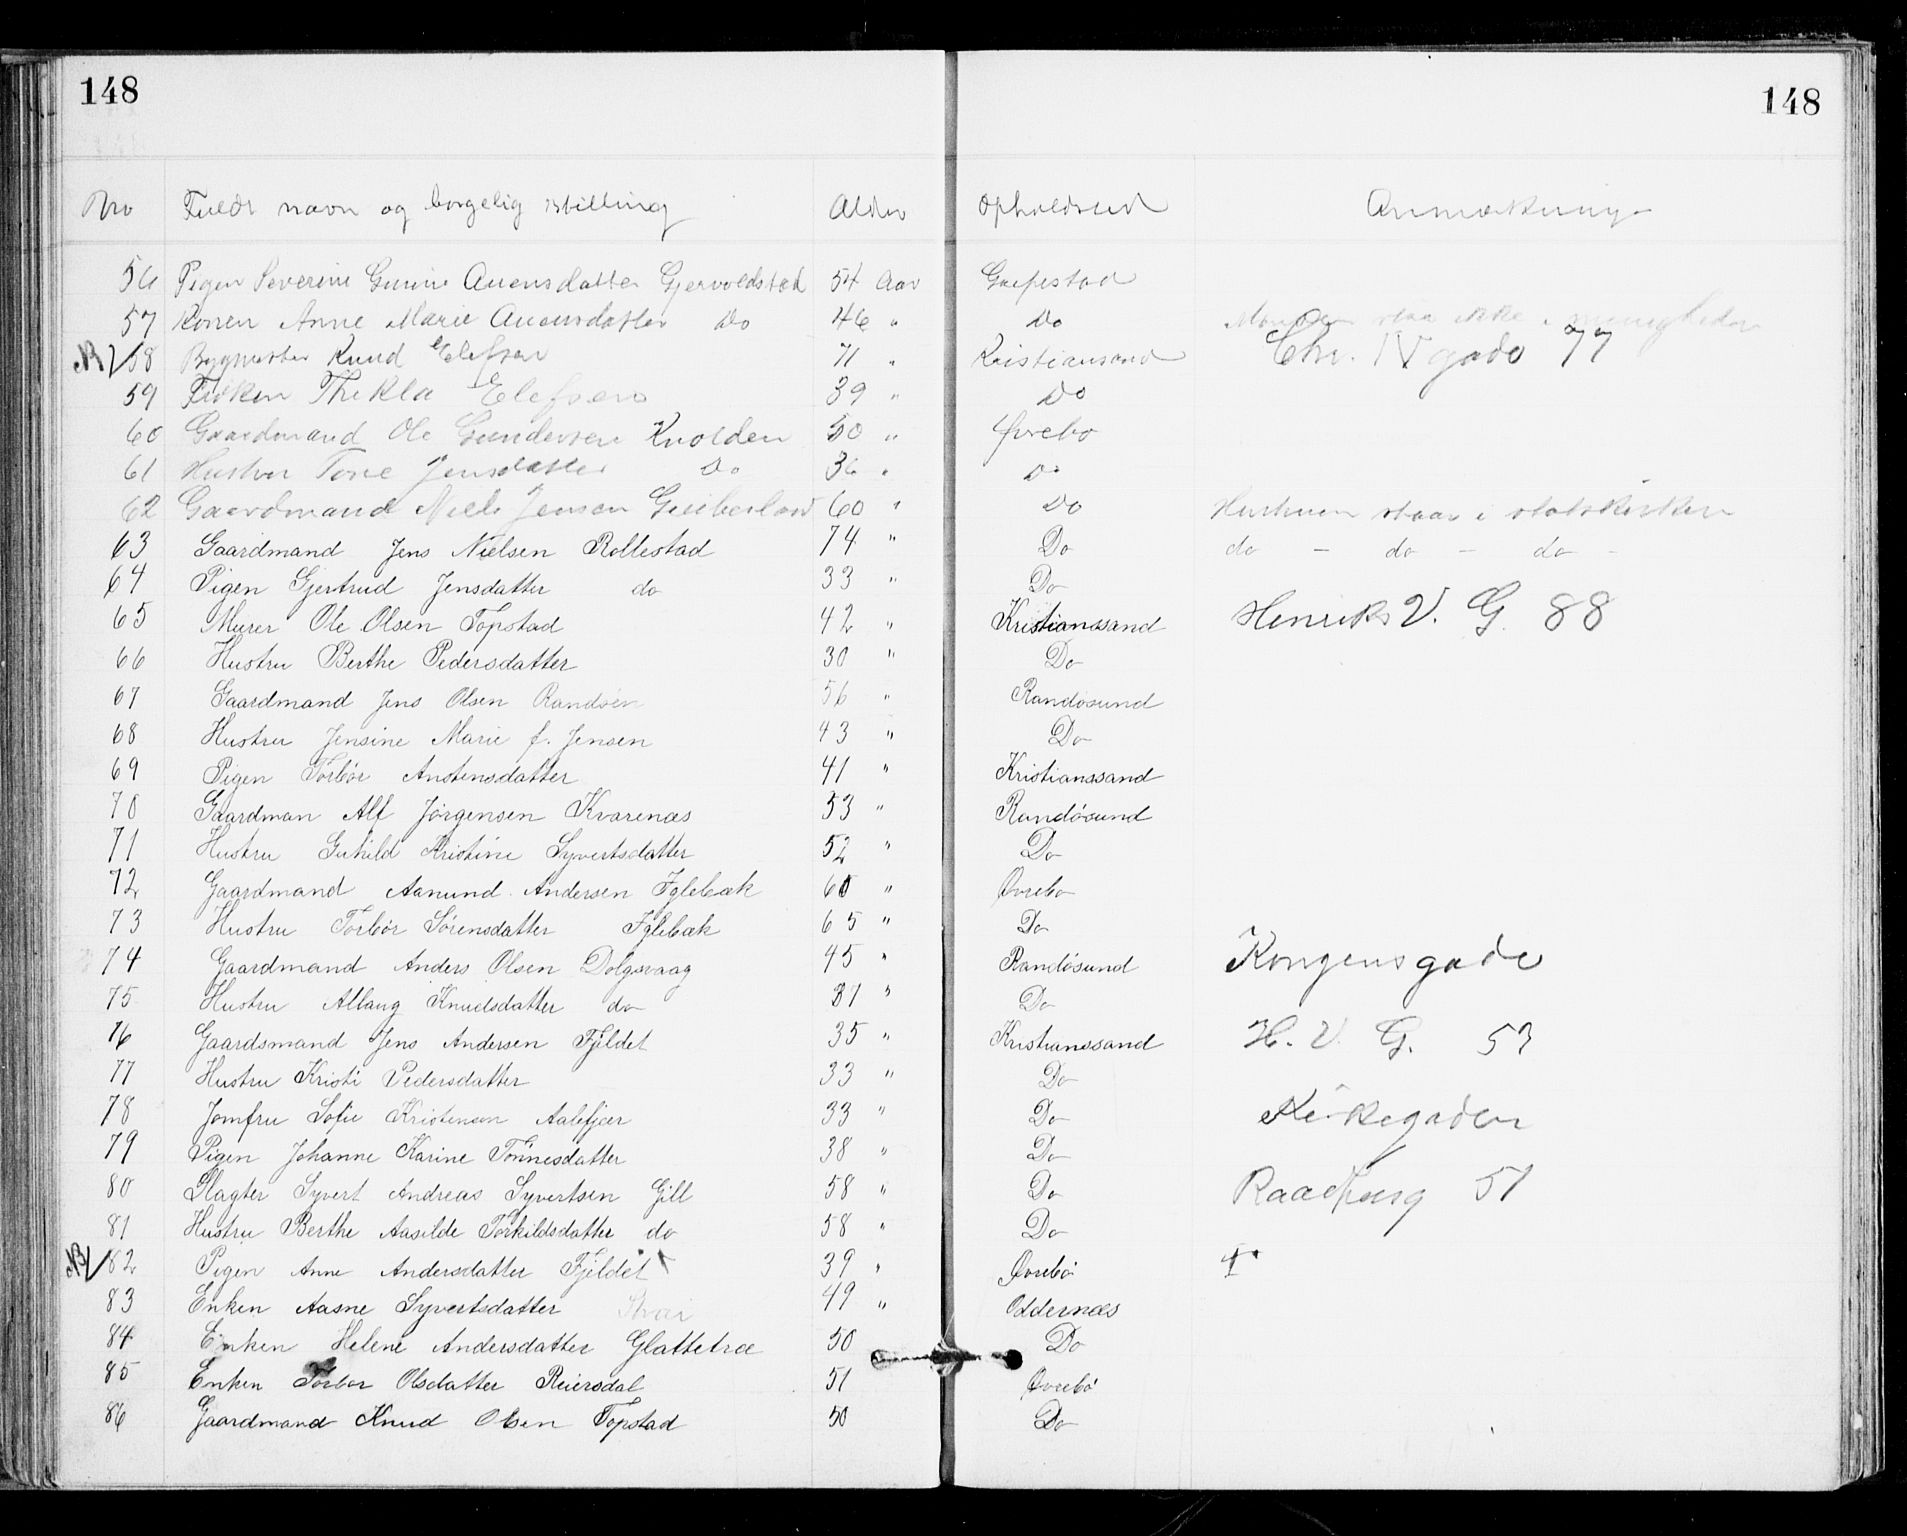 148 148
No Fuldt navn og borgelig stilling Alder Opholdssted Anmærkning
56 Pigen Severine Gurine Auensdatter Gjervoldstad 54 Aar Greipestad
57 Konen Anne Marie Auensdatter Do 46 " Do Manden staa ikke i menigheden
NB 58 Bygmester Knud Elefsen 71 " Kristiansand Chr. IV gade 77
59 Frøken Thekla Elefsen 39 " Do
60 Gaardmand Ole Gundersen Knolden 50 " Øvrebo
61 Hustru Tone Jensdatter Do 36 " Do
62 Gaardmand Niels Jensen 60 " Do Hustruen staar i statskirken
63 Gaardmand Jens Nielsen Rollestad 74 " Do do - do - do -
64 Pigen Gjertrud Jensdatter do 33 " Do
65 Murer Ole Olsen Topstad 42 " Kristianssand Henriks V. G. 88
66 Hustru Berthe Pedersdatter 30 " Do
67 Gaardmand Jens Olsen Randøen 56 " Randøsund
68 Hustru Jensine Marie f. Jensen 43 " Do
69 Pigen Torbør Anstensdatter 41 " Kristianssand
70 Gaardman Alf Jørgensen Kvarenæs 53 " Randøsund
71 Hustru Guhild Kristine Syvertsdatter 52 " Do
72 Gaardmand Aanund Andersen Iglebæk 60 " Øvrebo
73 Hustru Torbør Sørensdatter Iglebæk 65 " Do
74 Gaardmand Anders Olsen Dolgsvaag 45 " Randøsund Kongensgade
75 Hustru Allaug Knudsdatter do 37 " Do
76 Gaardsmand Jens Andersen Fjeldet 35 " Kristianssand H. V. G. 53
77 Hustru Kristi Pedersdatter 33 " Do
78 Jomfru Sofie Kristensen Aalefjær 33 " Do Kirkegaden
79 Pigen Johanne Karine Tønnesdatter 38 " Do
80 Slagter Syvert Andreas Syvertsen Gill 58 " Do Raadhusg 51
81 Hustru Berthe Aasilde Torkildsdatter do 58 " Do
NB 82 Pigen Anne Andersdatter Fjeldet 39 " Øvrebø †
83 Enken Aasne Syvertsdatter 49 " Oddernæs
84 Enken Helene Andersdatter Glattetræ 50 Do
85 Enken Torbor Olsdatter Reiersdal 51 Øvrebø
86 Gaardmand Knud Olsen Topstad 50 Do